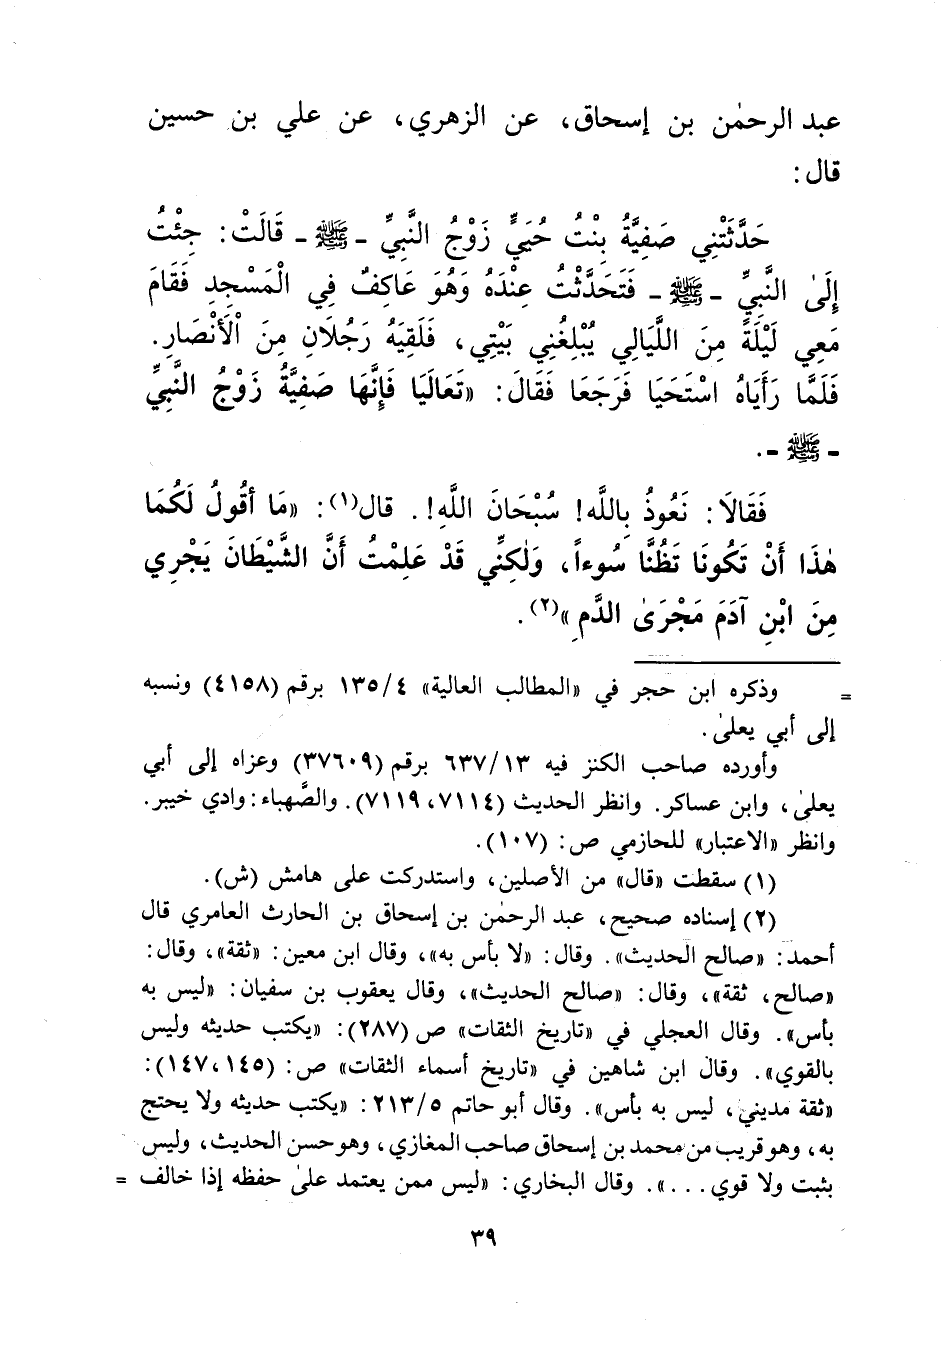 عبد الرحمٰن بن إسحاق، عن الزهري، عن علي بن حسين
قال:
حَدَّثَتْنِي صَفِيَّةُ بِنْتُ حُيَيٍّ زَوْجُ النَّبِيِّ ـ ﷺ ـ قَالَتْ: جِئْتُ
إِلَىٰ النَّبِيِّ ـ ﷺ ـ فَتَحَدَّثْتُ عِنْدَهُ وَهُوَ عَاكِفٌ فِي الْمَسْجِدِ فَقَامَ
مَعِي لَيْلَةً مِنَ اللَّيَالِي يُبْلِغُنِي بَيْتِي، فَلَقِيَهُ رَجُلَانِ مِنَ الْأَنْصَارِ.
فَلَمَّا رَأَيَاهُ اسْتَحْيَا فَرَجَعَا فَقَالَ: «تَعَالَيَا فَإِنَّهَا صَفِيَّةُ زَوْجُ النَّبِيِّ
ـ ﷺ ـ.
فَقَالَا: نَعُوذُ بِاللَّه! سُبْحَانَ اللَّهِ!. قال(١): «مَا أَقُولُ لَكُمَا
هٰذَا أَنْ تَكُونَا تَظُنَّا سُوءاً، وَلٰكِنِّي قَدْ عَلِمْتُ أَنَّ الشَّيْطَانَ يَجْرِي
مِنَ ابْنِ آدَمَ مَجْرَىٰ الدَّمِ»(٢).
= وذكره ابن حجر في «المطالب العالية» ٤/ ١٣٥ برقم (٤١٥٨) ونسبه
إلى أبي يعلىٰ.
وأورده صاحب الكنز فيه ١٣/ ٦٣٧ برقم (٣٧٦٠٩) وعزاه إلى أبي
يعلىٰ، وابن عساكر. وانظر الحديث (٧١١٤، ٧١١٩). والصَّهباء: وادي خيبر.
وانظر «الاعتبار» للحازمي ص: (١٠٧).
(١) سقطت «قال» من الأصلين، واستدركت على هامش (ش).
(٢) إسناده صحيح، عبد الرحمٰن بن إسحاق بن الحارث العامري قال
أحمد: «صالح الحديث». وقال: «لا بأس به»، وقال ابن معين: «ثقة»، وقال:
«صالح، ثقة»، وقال: «صالح الحديث»، وقال يعقوب بن سفيان: «ليس به
بأس». وقال العجلي في «تاريخ الثقات» ص (٢٨٧): «يكتب حديثه وليس
بالقوي». وقال ابن شاهين في «تاريخ أسماء الثقات» ص: (١٤٥، ١٤٧):
«ثقة مديني، ليس به بأس». وقال أبو حاتم ٥/ ٢١٣: «يكتب حديثه ولا يحتج
به، وهو قريب من محمد بن إسحاق صاحب المغازي، وهو حسن الحديث، وليس
بثبت ولا قوي...». وقال البخاري: «ليس ممن يعتمد علىٰ حفظه إذا خالف =
٣٩